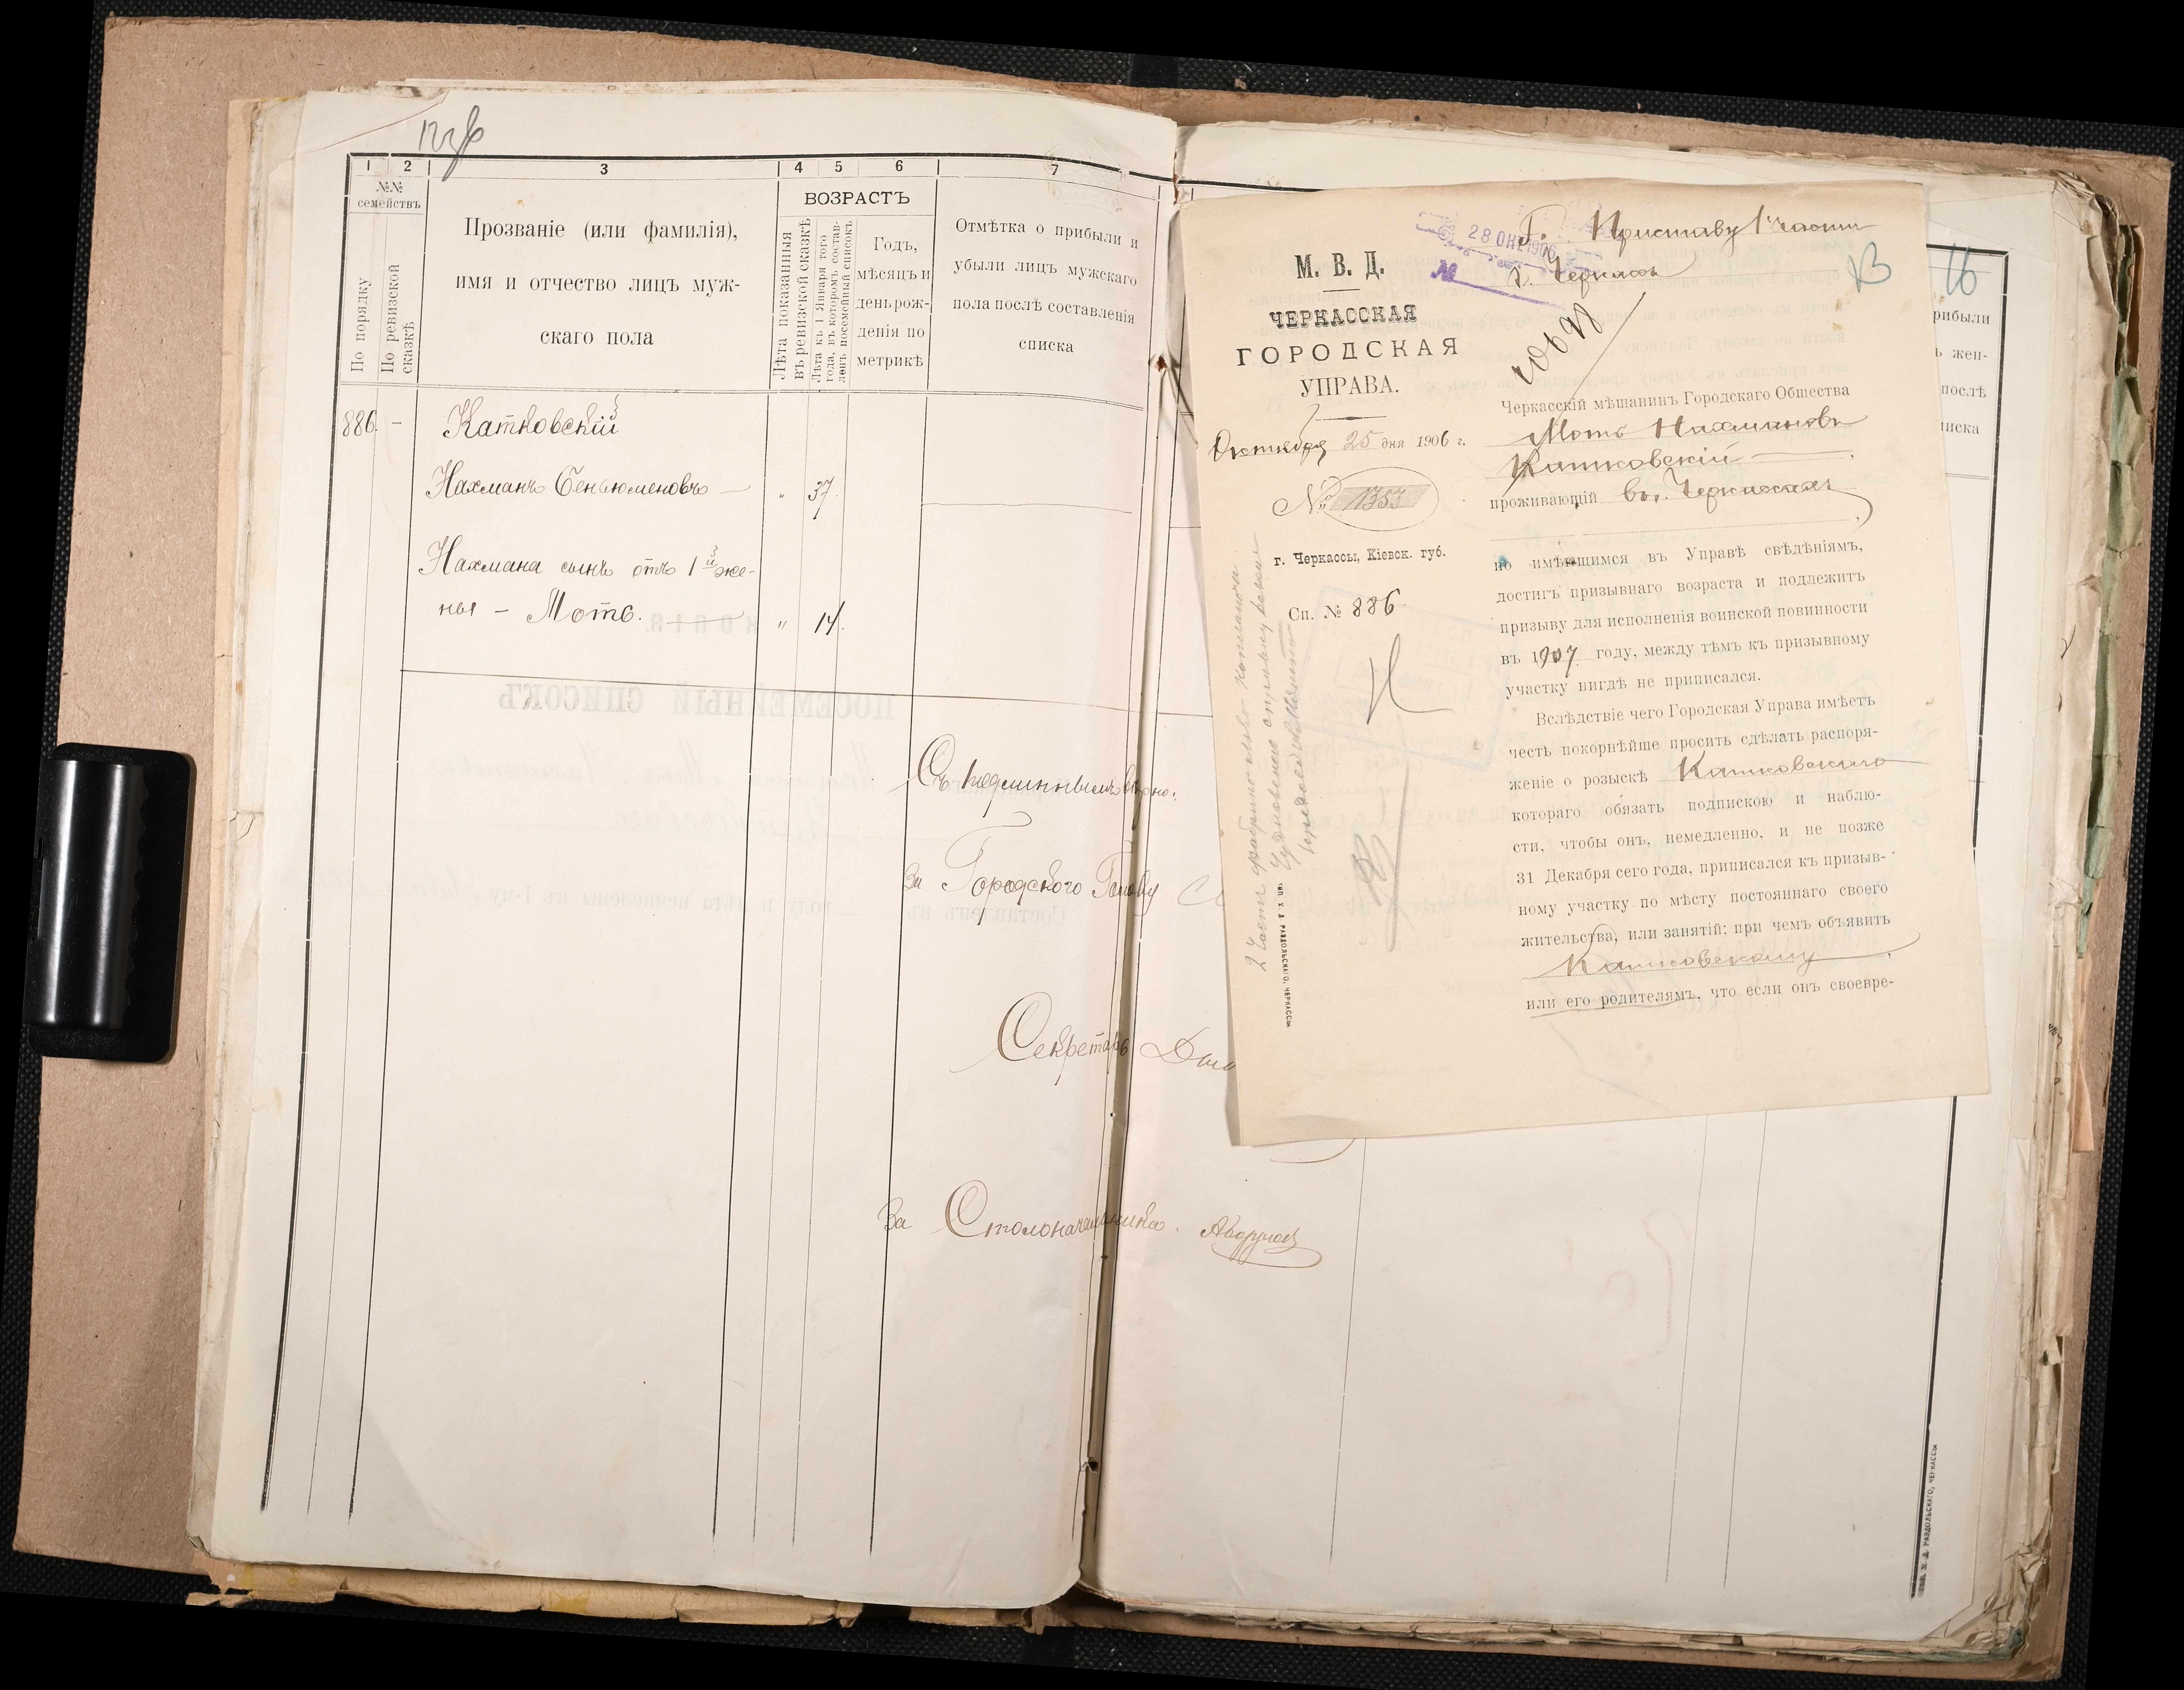 1 2 3 4 5 6 7
№№ семействъ
По порядку
По ревизской сказкѣ
Прозваніе (или фамилія),
имя и отчество лицъ муж-
скаго пола
ВОЗРАСТЪ
Лѣта показанныя
въ ревизской сказкѣ
Лѣта къ 1 Января того
года, въ которомъ состав-
ленъ посемейный списокъ
Годъ,
мѣсяцъ и
день рож-
денія по
метрикѣ
Отмѣтка о прибыли и
убыли лицъ мужскаго
пола послѣ составленія
списка
886. - Катковскій
Нахманъ Беньюменовъ — " 37.
Нахмана сынъ отъ 1й же-
ны - Мотъ. " 14.
Съ подлиннымъ вѣрно:
За Городского Голову
Секретарь
За Столоначальника.
16
рибыли
ь жен-
послѣ
иска
28 ОКТ 1906
№
Г. Приставу 1 части
г. Черкассъ
М. В. Д.
ЧЕРКАССКАЯ
ГОРОДСКАЯ
УПРАВА.
Октября 25 дня 1906 г.
№ 11353
г. Черкассы, Кіевск. губ.
Сп. № 886.
Черкасскій мѣщанинъ Городскаго Общества
Мотъ Нахмановъ
Катковскій
проживающій въ г. Черкассахъ
по имѣющимся въ Управѣ свѣдѣніямъ,
достигъ призывнаго возраста и подлежитъ
призыву для исполненія воинской повинности
въ 1907 году, между тѣмъ къ призывному
участку нигдѣ не приписался.
Вслѣдствіе чего Городская Управа имѣетъ
честь покорнѣйше просить сдѣлать распоря-
женіе о розыскѣ Катковскаго
котораго обязать подпискою и наблю-
сти, чтобы онъ, немедленно, и не позже
31 Декабря сего года, приписался къ призыв-
ному участку по мѣсту постояннаго своего
жительства, или занятій; при чемъ объявить
Катковскому
или его родителямъ, что если онъ своевре-
ТИП. Х. Д. РАЗДОЛЬСКАГО, ЧЕРКАССЫ
ТИП. Х. Д. РАЗДОЛЬСКАГО, ЧЕРКАССЫ